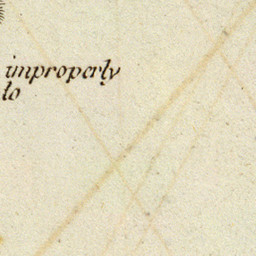 improperly
to